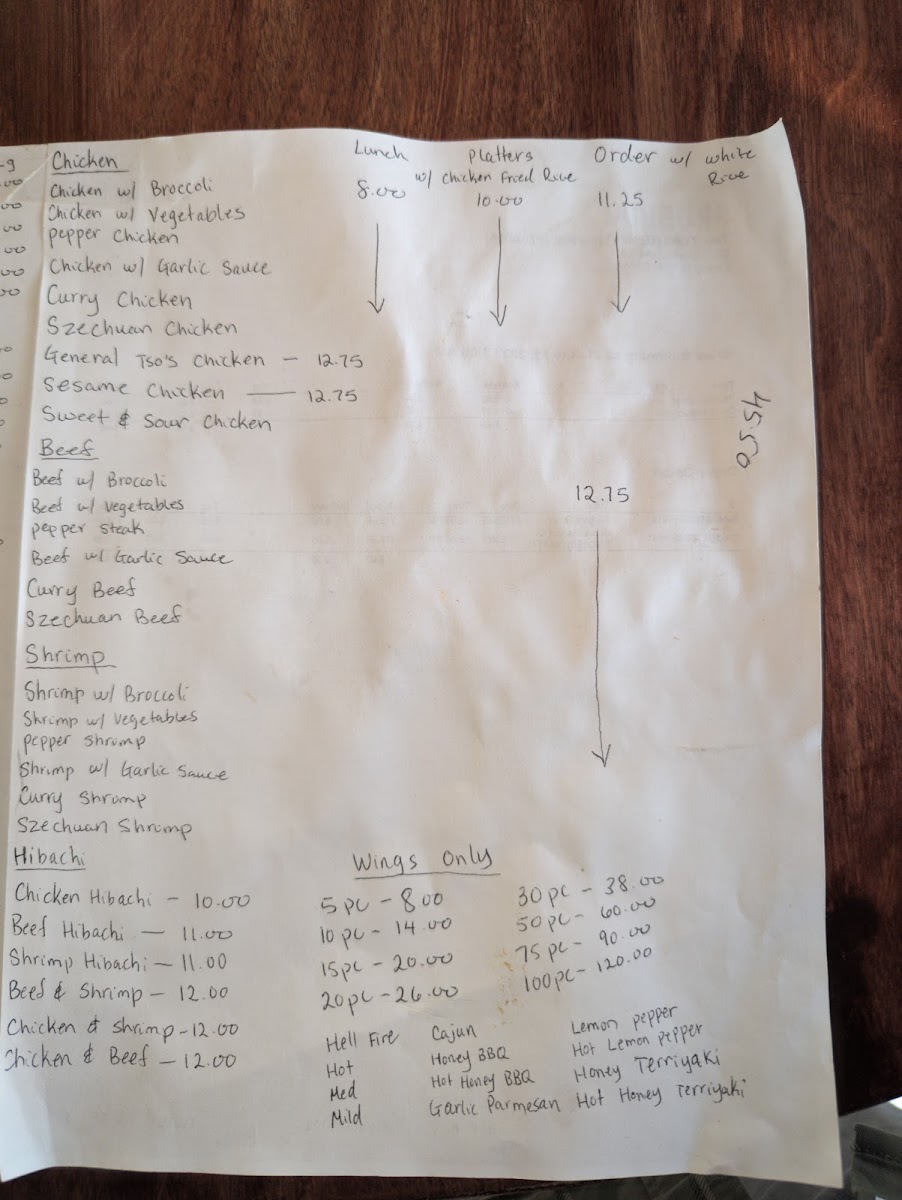 Chicken Lunch Platters Order w/ white
w/ Chicken Fried Rice Rice
Chicken w/ Broccoli 8.00 10.00 11.25
Chicken w/ Vegetables
Pepper Chicken
Chicken w/ Garlic Sauce
Curry Chicken
Szechuan Chicken
General Tso's Chicken - 12.75
Sesame Chicken - 12.75
Sweet & Sour Chicken
Beef
Beef w/ Broccoli
12.75
Beef w/ Vegetables
pepper steak
Beef w/ Garlic Sauce
Curry Beef
Szechuan Beef
Shrimp
Shrimp w/ Broccoli
Shrimp w/ Vegetables
pepper shrimp
Shrimp w/ Garlic Sauce
Curry Shrimp
Szechuan Shrimp
Hibachi
Chicken Hibachi - 10.00
Beef Hibachi - 11.00
Shrimp Hibachi - 11.00
Beef & Shrimp - 12.00
Chicken & Shrimp - 12.00
Chicken & Beef - 12.00
Wings Only
5 pc - 8.00 30 pc - 38.00
10 pc - 14.00 50 pc - 60.00
15 pc - 20.00 75 pc - 90.00
20 pc - 26.00 100 pc - 120.00
Hell Fire Cajun Lemon pepper
Hot Honey BBQ Hot Lemon pepper
Med Hot Honey BBQ Honey Terriyaki
Mild Garlic Parmesan Hot Honey Terriyaki